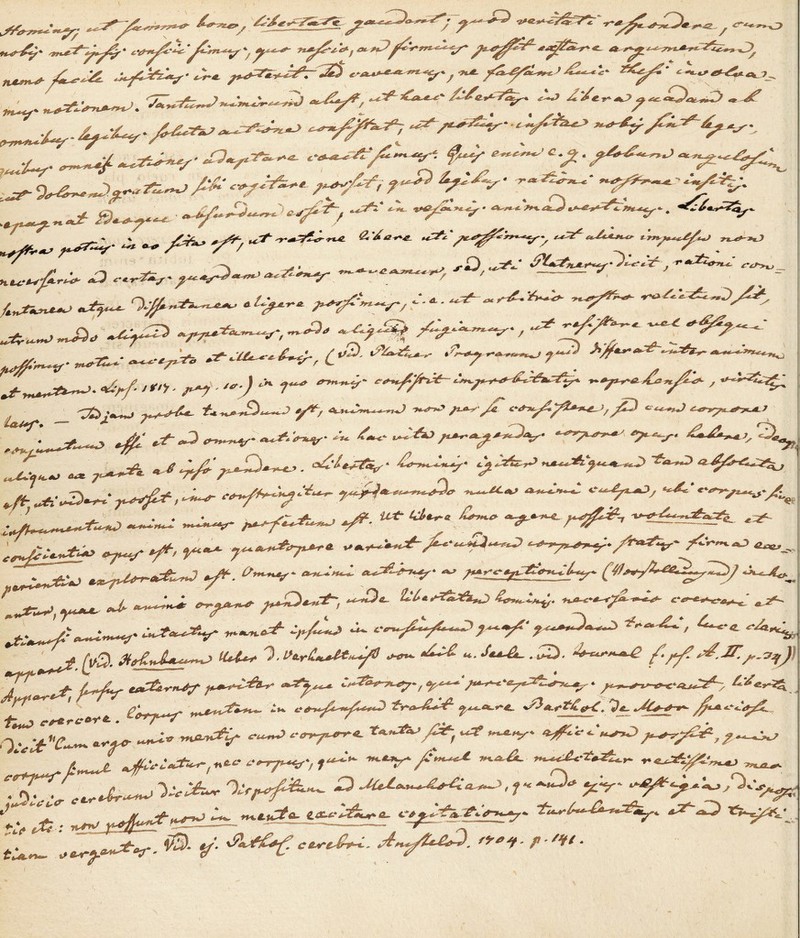 Homines, ut summo bono, libertate gaudent; quod veritati respondere, cum
nobis met ipsis conscii simus, quo nescio, an firmius possit exstare argumentum,
nemo facile infitias ire poterit. Sed caveamus, ne falsam huic thesi involva=
mus notionem. Tantum nimirum abest, ut haec libertas in libera quadam ab
omnibus legibus soluta actione consistat, ut potius insitae nobis sint leges,
quibus omnes actiones adaptare coacti sumus. Quis enim e. g. globum angulosum
aut dolorem gratum sibi cogitare possit, quod legibus rationi nostrae insitis
repugnat ideoque absurdum esset, uti in vesanis animadvertimus. Libertas
nostra potius in eo sita est, ut ratione libere uti possimus, ut alieno impulsu non
necessario ad certas quasdam actiones moveamur, sed, uti Platnerus dicit, rationi con=
sentanea atque dissentanea eligere possimus, i. e. ut arbitrio nostro relictum sit,
utrum modo aliquid appetamus, modo aliquid fugiamus, ut resistere vel obsequi
possimus motui accepto et illecebris, (vid. Platner Programm quid differat inter animum
et mentem. Lips. 1817. pag. 10.) in quo omnis consistit improbitatis reprehensio, virtutis
laus. — Sed jam probe tenendum est, animum non per se consistere, sed cum corpore
conjunctum esse et ad omnes actiones in hac vita peragendas corpore opus habere, ideoque
aliqua ex parte ab ipso pendere. Libertas hominis igitur neutiquam tam absoluta
est, uti videri posset, imo constringitur quodammodo nulla animi culpa, ubi corpus sive
instrumentum animi minus perfectum est. Ut libere homo agere possit, voluntate et
conscientia opus est, quae quantopere varient secundum corporis status firma ex=
perientia exploratum est. Omnes animi actiones a perceptionibus (Vorstellungen) incho=
antur, quae ab animi organo pendent, unde libertatem hominis necessario coerceri et
etiamsi animus intactus manet ipsum in consensum quasi quendam trahi, luce clarius
apparet. (Vid. Hohnbaum Ueber d. Verhaeltniß von Leib u. Seele. vid. Journal f. ps. A. II. p. 34)
Apparet, sensus externos pariter atque internos, qui perceptiones provocant, liberta
tem coercere. Corpus mentem in consensum trahit quare Barthol. de Moor speciose
dicit "Cum ergo unio mentis cum corpore tanta sit, ut mens affici non possit, quin
corpus simul afficiatur, nec corpus, quin mens simul male mulctetur rectissime meo
judicio cerebrum dicitur dispositum ad Melancholiam, quando ejus vestigia, disposi
tio etc: non possunt non in mente excitare cogitationes turbulentas et ad tristi=
tiam vergentes. Vid. ej. Pathol. cerebri. Amstelod. 1704. p. 141.